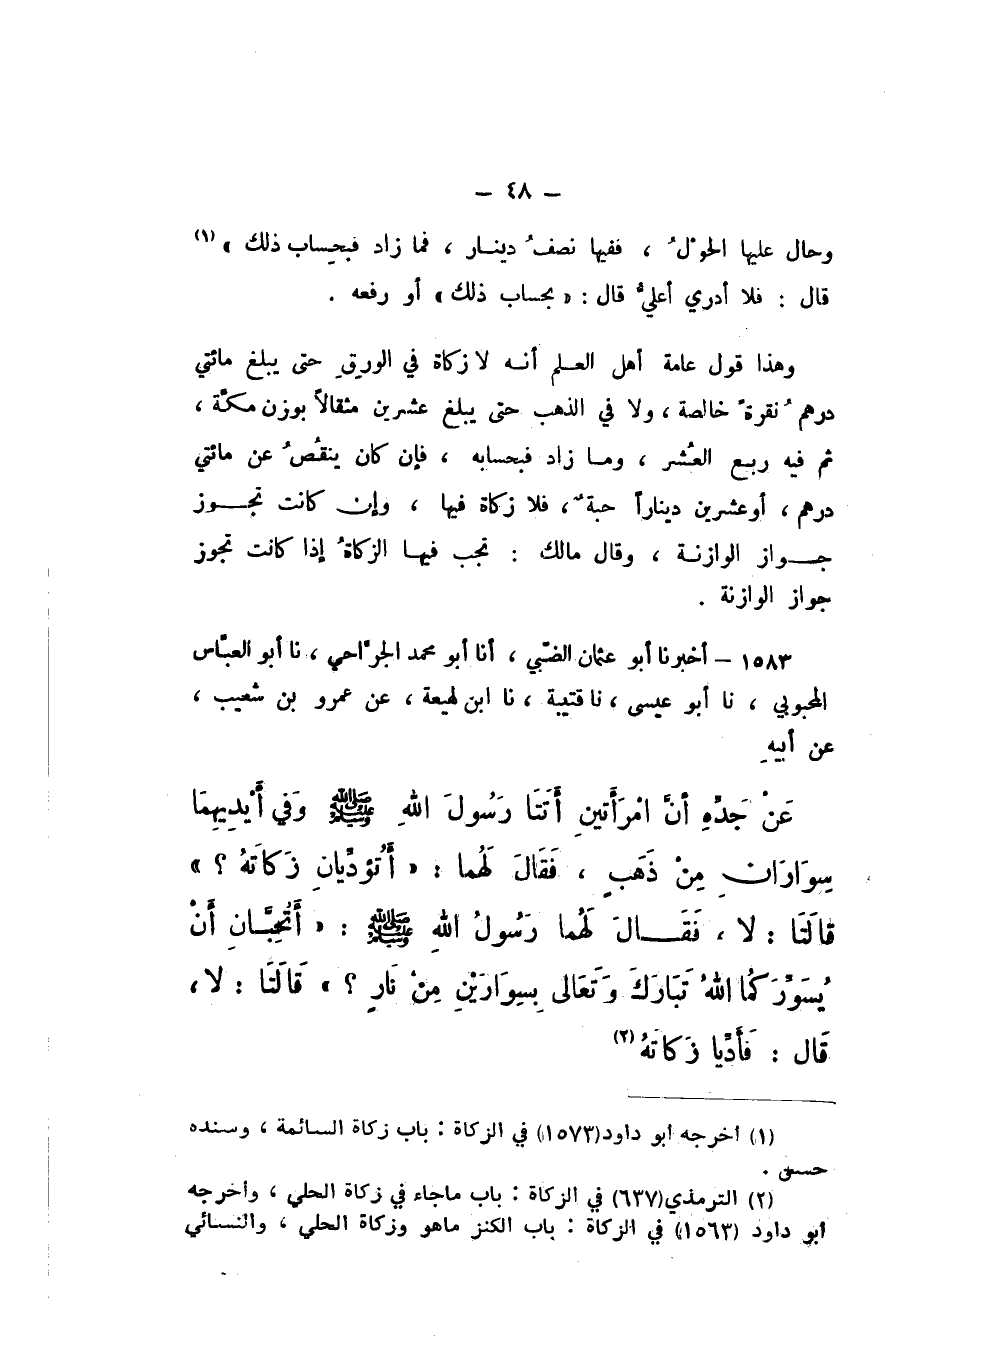 – ٤٨ –
وحال عليها الحَوْلُ ، ففيها نصفُ دينـار ، فما زاد فبحِساب ذلك » (١)
قال : فلا أدري أعليٌّ قال : « بحساب ذلك » أو رفعه .
وهذا قول عامة أهل العـلم أنـه لا زكاة في الورِقِ حتى يبلغ مائتي
درهم نُقرةً خالصة ، ولا في الذهب حتى يبلغ عشرين مثقالاً بوزن مكّة ،
ثم فيه ربـع العُشر ، ومـا زاد فبحسابه ، فإن كان ينقُصُ عن مائتي
درهم ، أو عشرين ديناراً حبةٌ ، فلا زكاة فيها ، وإن كانت تجـوز
جـواز الوازنـة ، وقال مالك : تجب فيهـا الزكاةُ إذا كانت تجوز
جواز الوازنة .
١٥٨٣ – أخبرنا أبو عثمان الضبّي ، أنا أبو محمد الجرّاحي ، نا أبو العبّاس
المحبوبي ، نا أبو عيسى ، نا قتيبة ، نا ابن لهيعة ، عن عمرو بن شعيب ،
عن أبيهِ
عَنْ جَدِّهِ أَنَّ امْرَأَتينِ أَتَتَا رَسُولَ اللهِ ﷺ وَفي أَيْدِيهِمَا
سِوَارَانِ مِنْ ذَهَبٍ ، فَقَالَ لَهُما : « أَتُؤدِّيانِ زَكَاتَهُ ؟ »
قالَتَا : لا ، فَقَـالَ لَهُما رَسُولُ اللهِ ﷺ : « أَتُحِبَّـانِ أَنْ
يُسَوِّرَكُما اللهُ تَبَارَكَ وَتَعَالى بِسِوَارَيْنِ مِنْ نَارٍ ؟ » قَالَتَا : لا ،
قَال : فَأَدِّيا زَكَاتَهُ (٢)
(١) أخرجه أبو داود (١٥٧٣) في الزكاة : باب زكاة السائمة ، وسنده
حسن .
(٢) الترمذي (٦٣٧) في الزكاة : باب ماجاء في زكاة الحلي ، وأخرجه
أبو داود (١٥٦٣) في الزكاة : باب الكنز ماهو وزكاة الحلي ، والنسائي